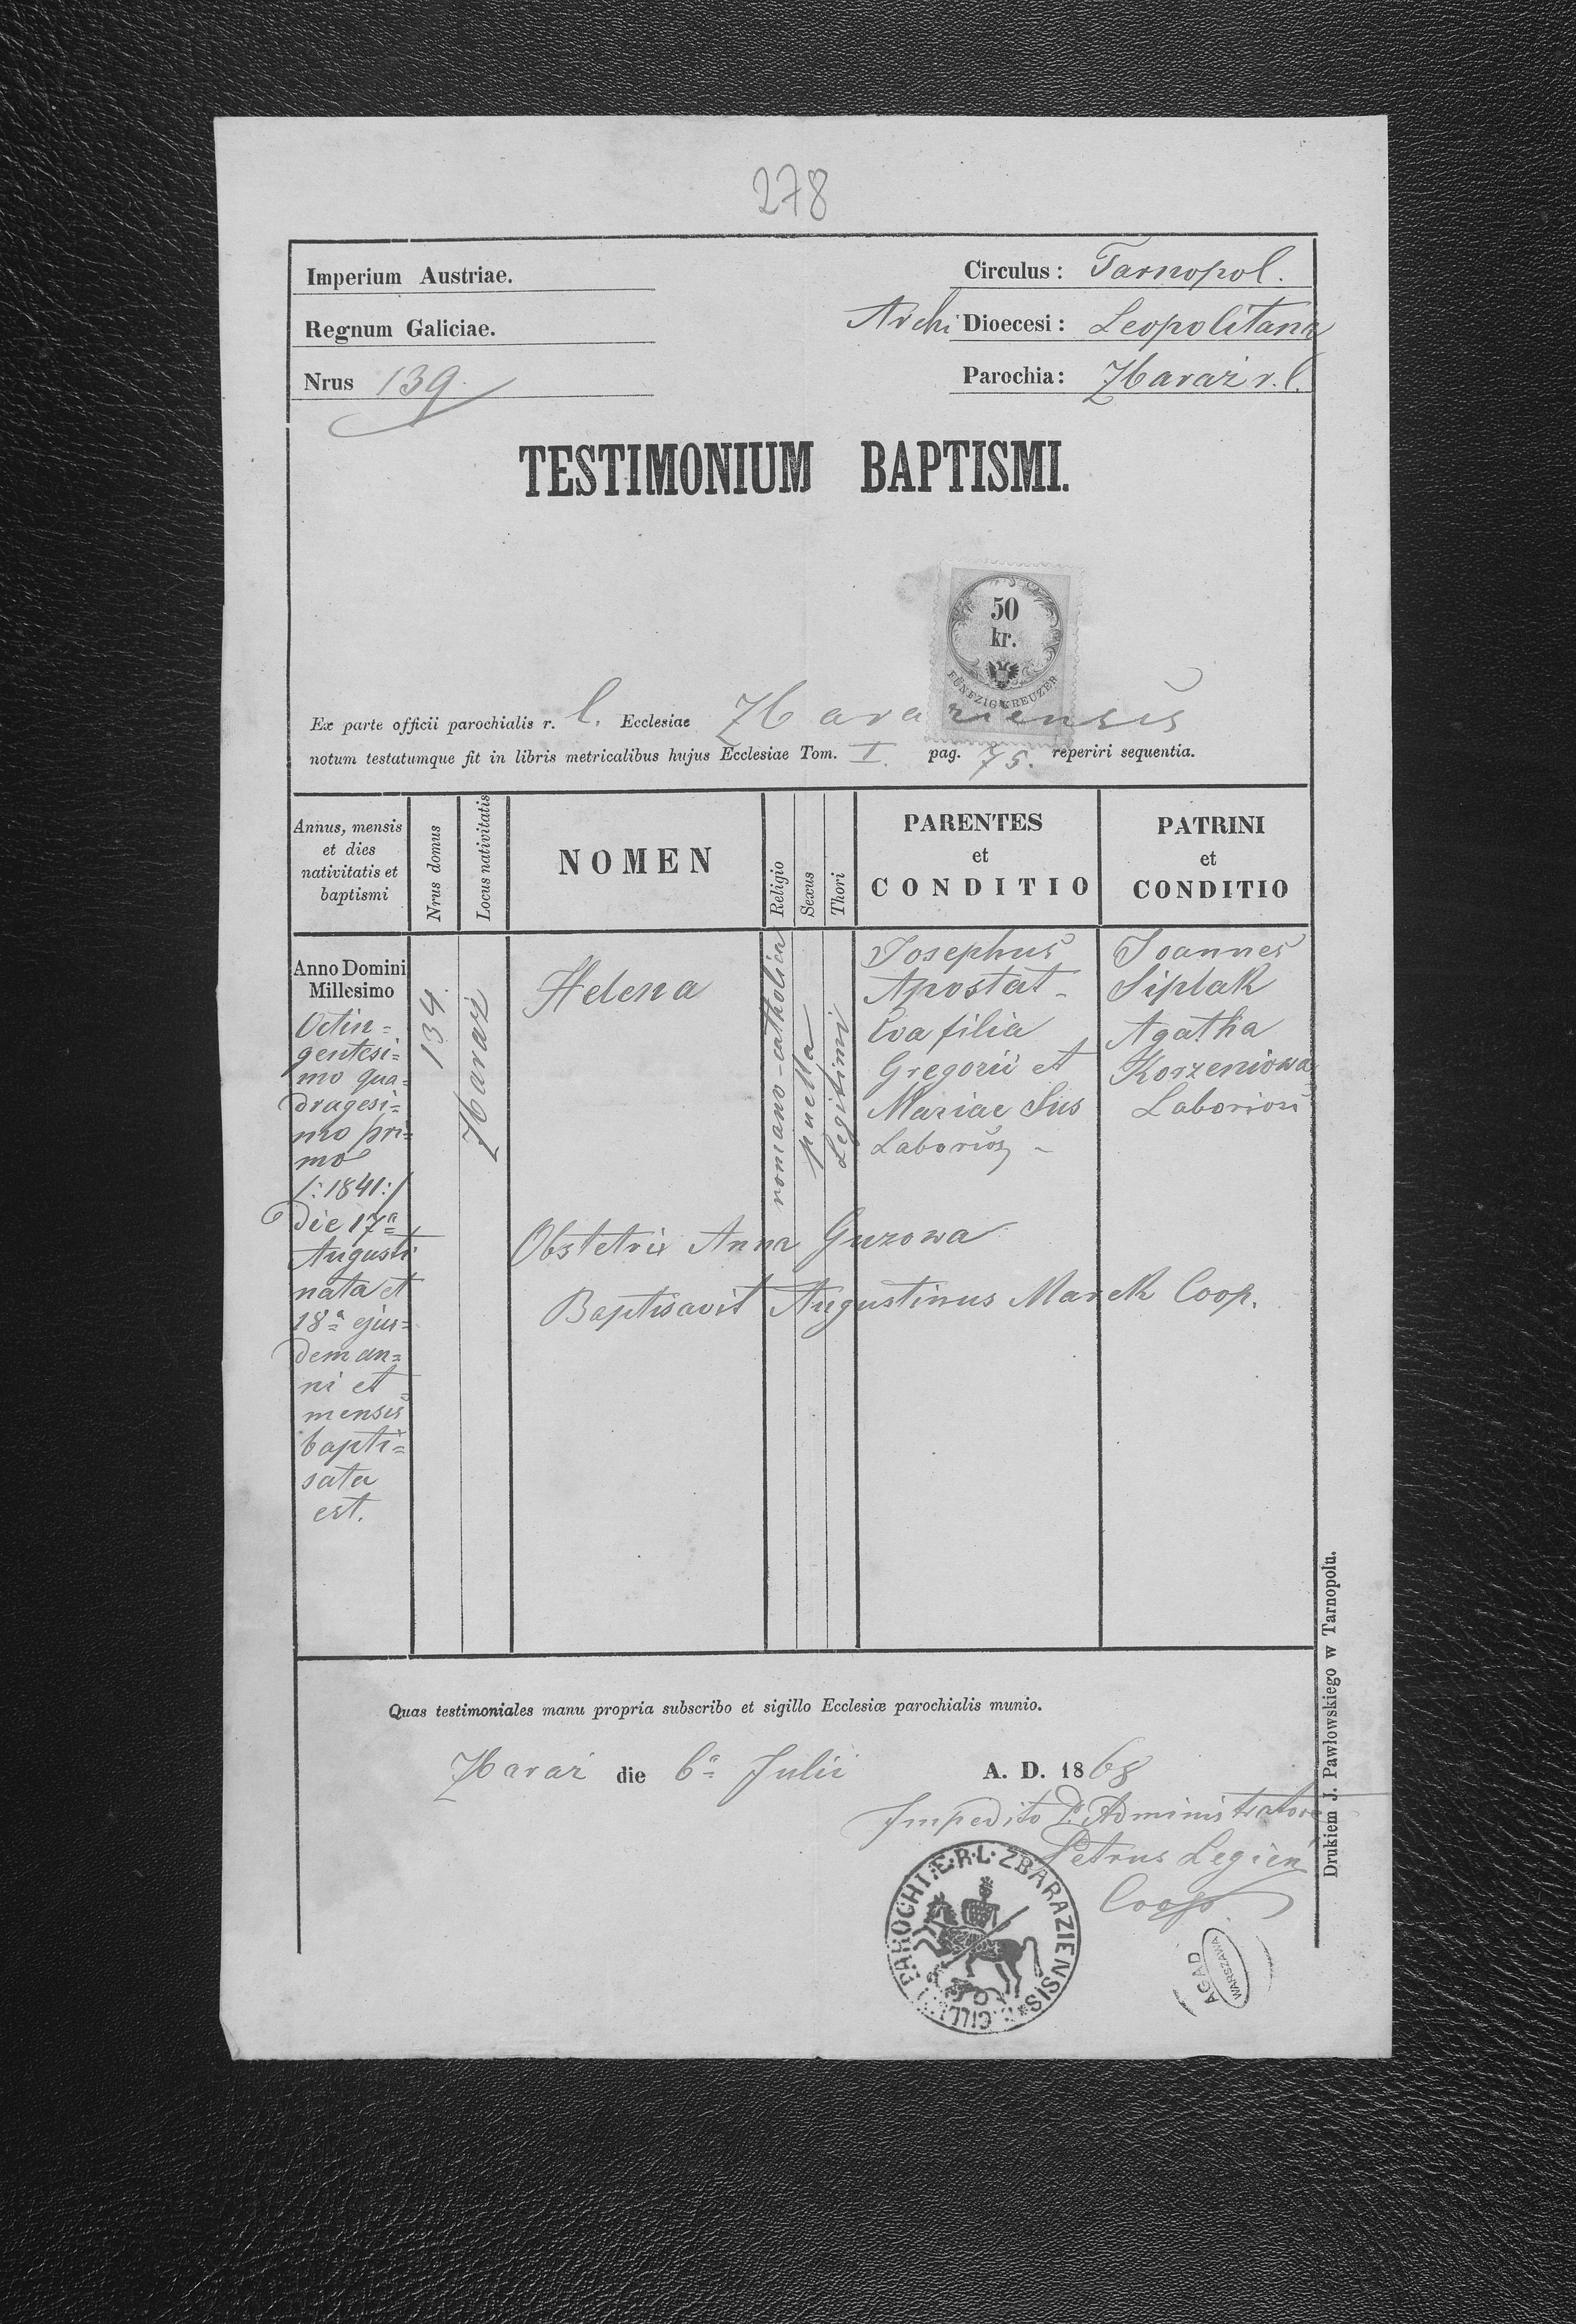 278
Imperium Austriae.
Circulus: Tarnopol.
Regnum Galiciae.
Archi Dioecesi: Leopolitana
Nrus 139.
Parochia: Zbaraż r. l.
TESTIMONIUM BAPTISMI.
50
kr.
FÜNFZIG KREUZER
Ex parte officii parochialis r. l. Ecclesiae Zbaraziensis
notum testatumque fit in libris metricalibus hujus Ecclesiae Tom. I. pag. 75. reperiri sequentia.
Annus, mensis
et dies
nativitatis et
baptismi
Nrus domus
Locus nativitatis
NOMEN
Religio
Sexus
Thori
PARENTES
et
CONDITIO
PATRINI
et
CONDITIO
Anno Domini
Millesimo
Octin=
gentesi=
mo qua=
dragesi=
mo pri=
mo
/:1841:/
die 17ª
Augusti
nata et
18ª ejus=
dem an=
ni et
mensis
bapti=
sata
est.
134.
Zbaraż
Helena
romano-catholica
puella
Legitimi
Josephus
Apostat -
Eva filia
Gregorii et
Mariae Sus
Laborios -
Joannes
Siplak
Agatha
Korzeniowa
Laboriosi
Obstetrix Anna Guzowa
Baptisavit Augustinus Marek Coop.
Quas testimoniales manu propria subscribo et sigillo Ecclesiæ parochialis munio.
Zbaraż die 6ª Julii A. D. 1868
Impedito P. Administratore
Petrus Legień
Coop.
PAROCHI: E. R. L. ZBARAZIENSIS
AGAD
WARSZAWA
Drukiem J. Pawłowskiego w Tarnopolu.